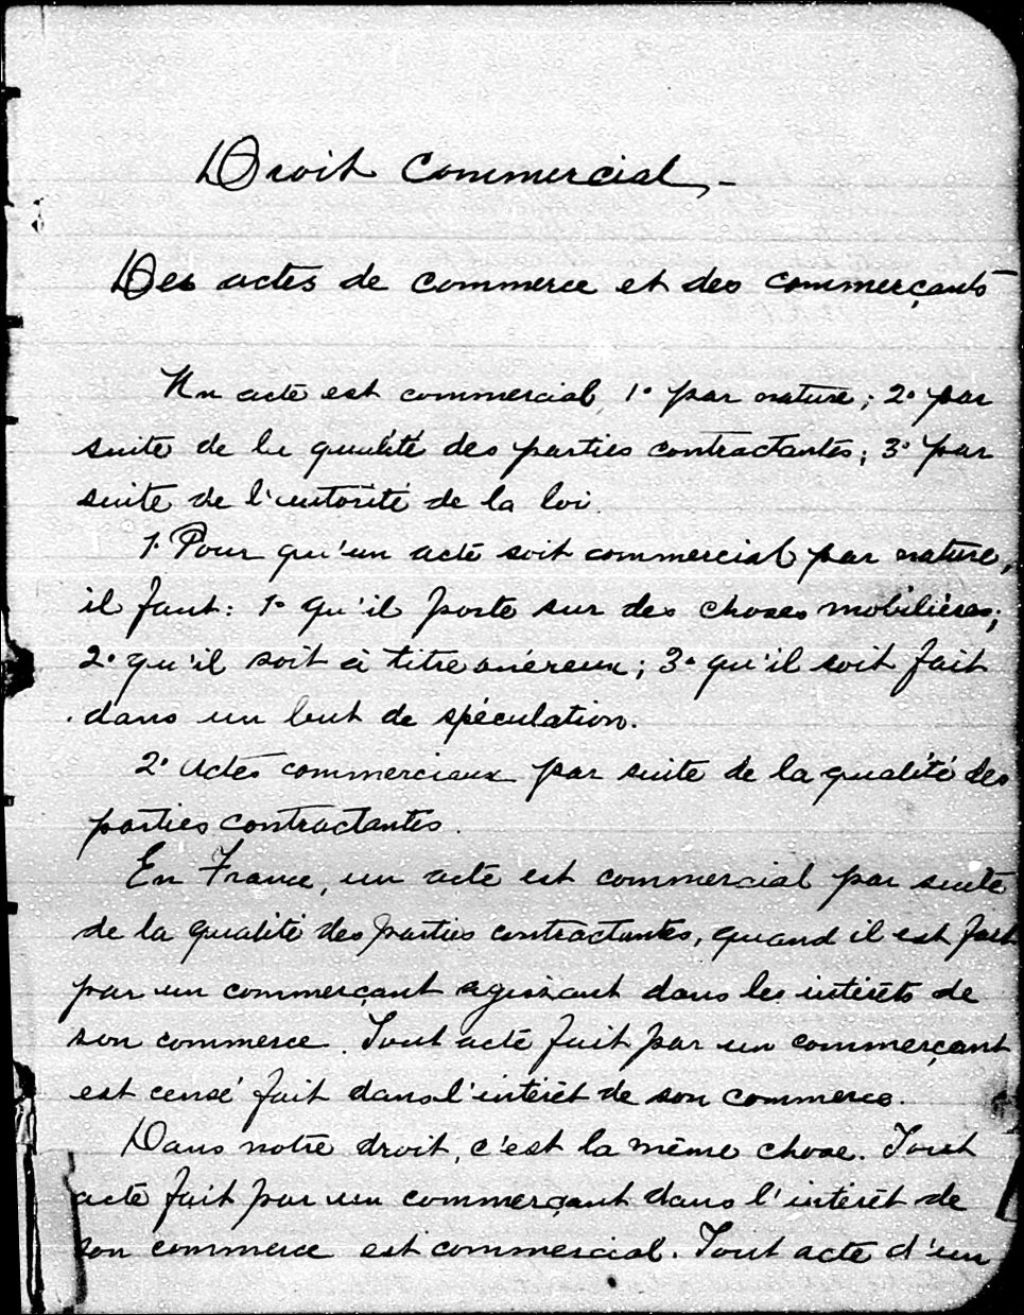 Droit Commercial, -
Des actes de commerce et des commerçants
Un acte est commercial, 1º par nature; 2º par
suite de la qualité des parties contractantes; 3º par
suite de l'autorité de la loi.
1. Pour qu'un acte soit commercial par nature,
il faut: 1º qu'il porte sur des choses mobilières;
2º qu'il soit à titre onéreux; 3º qu'il soit fait
dans un but de spéculation.
2º Actes commerciaux par suite de la qualité des
parties contractantes.
En France, un acte est commercial par suite
de la qualité des parties contractantes, quand il est fait
par un commerçant agissant dans les intérêts de
son commerce. Tout acte fait par un commerçant
est censé fait dans l'intérêt de son commerce.
Dans notre droit, c'est la même chose. Tout
acte fait par un commerçant dans l'intérêt de
son commerce est commercial. Tout acte d'un